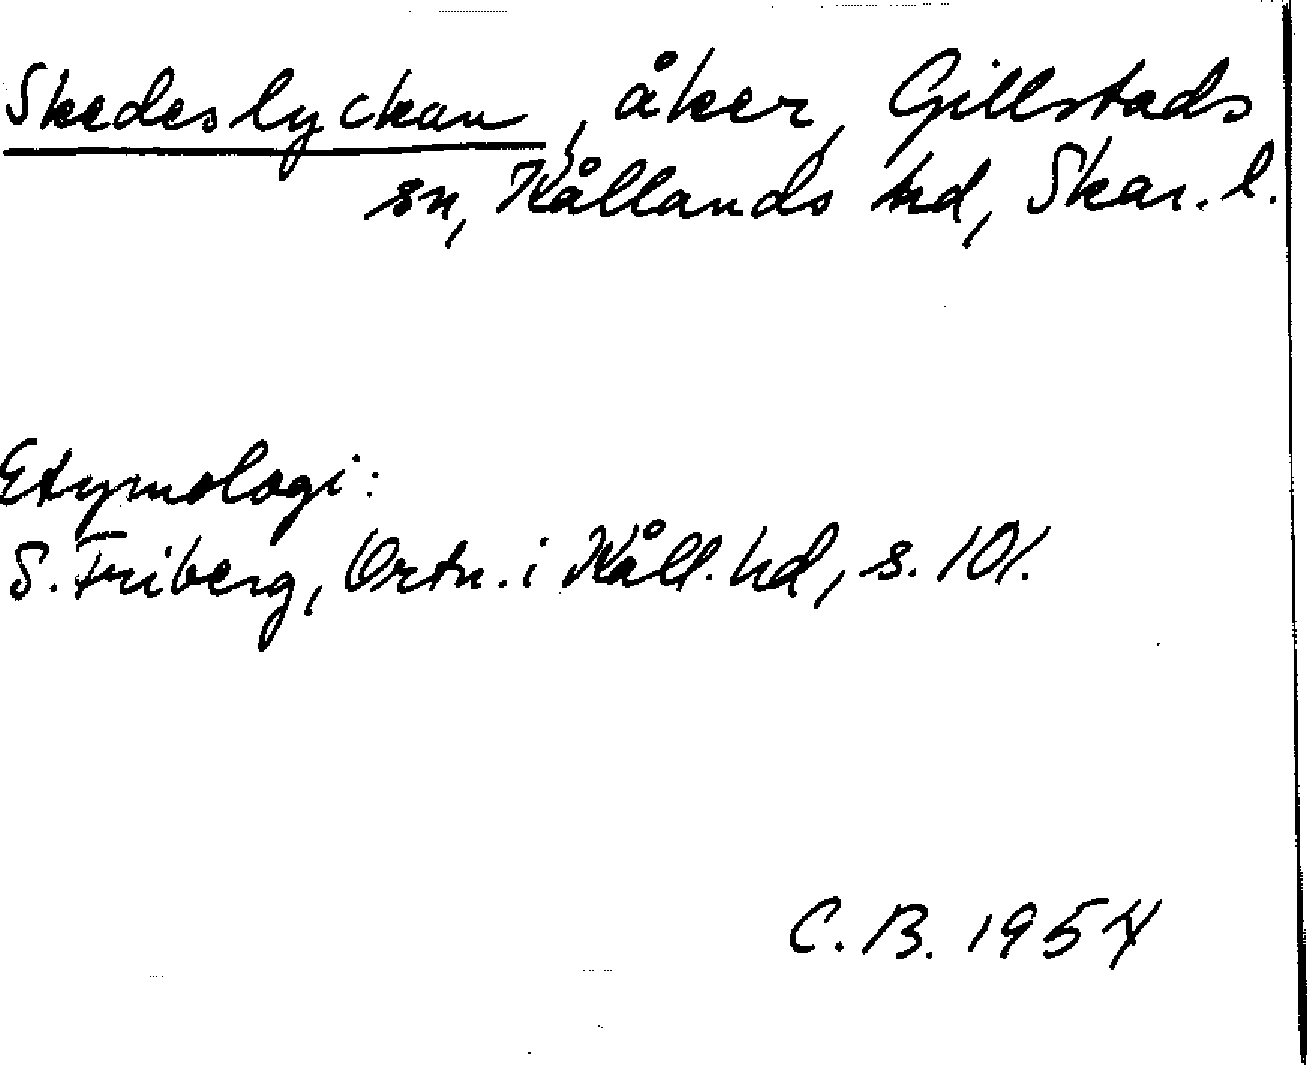 Skedeslyckan, åker, Gillstads
sn, Kållands hd, Skar. l.
Etymologi:
S. Friberg, Ortn. i Kåll. hd, s. 101.
C. B. 1954